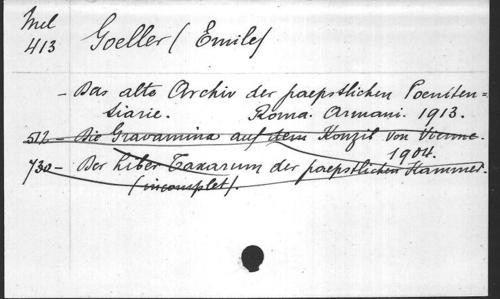 Mel
413
Goeller (Emile)
- Das alte Archiv der paepstlichen Poeniten=
tiarie. Roma. Armani. 1913.
512 - Die Gravamina auf dem Konzil von Vienne.
1904.
730 - Der Liber Taxarum der paepstlichen Kammer.
(incomplet).